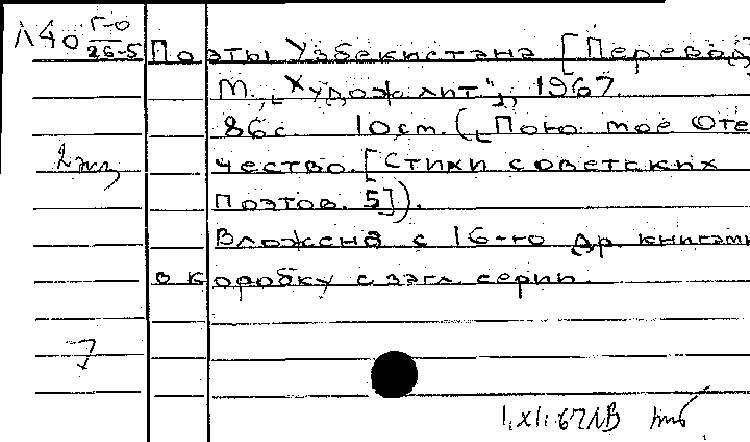 Л40 Г-0/26-5 Поэты Узбекистана [Перевод
М., "Худож лит", 1967.
86с 10см. ("Пою мое Оте-
2 экз чество. [Стихи советских
Поэтов. 5]).
Вложена с 16-ю др. книгами
в коробку с загл. серии.
7
1.XI.67